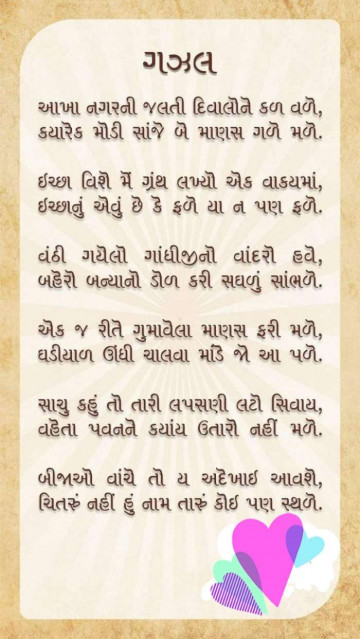 ગઝલ
આખા નગરની જલતી દિવાલોને કળ વળે,
કયારેક મોડી સાંજે બે માણસ ગળે મળે.
ઇચ્છા વિશે મેં ગ્રંથ લખ્યો એક વાકયમાં,
ઇચ્છાનું એવું છે કે ફળે યા ન પણ ફળે.
વંઠી ગયેલો ગાંધીજીનો વાંદરો હવે,
બહેરો બન્યાનો ડોળ કરી સઘળું સાંભળે.
એક જ રીતે ગુમાવેલા માણસ ફરી મળે,
ઘડીયાળ ઊંધી ચાલવા માંડે જો આ પળે.
સાચુ કહું તો તારી લપસણી લટો સિવાય,
વહેતા પવનને કયાંય ઉતારો નહીં મળે.
બીજાઓ વાંચે તો ય અદેખાઇ આવશે,
ચિતરું નહીં હું નામ તારું કોઇ પણ સ્થળે.